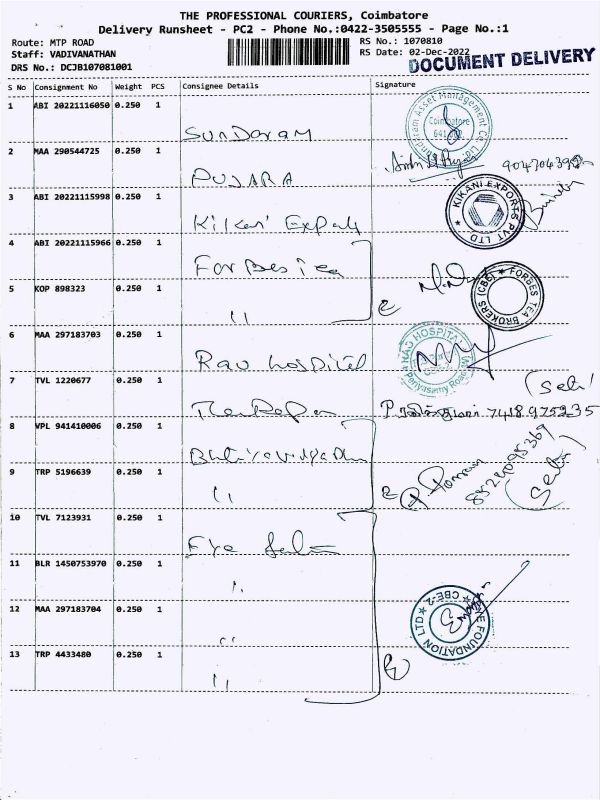 THE PROFESSIONAL COURIERS, Coimbatore
Delivery Runsheet - PC2 - Phone No.:0422-3505555 - Page No.:1
Route: MTP ROAD
RS No.: 1070810
Staff: VADIVANATHAN
RS Date: 02-Dec-2022
DRS No.: DCJB107081001
DOCUMENT DELIVERY
S No Consignment No Weight PCS Consignee Details Signature
1 ABI 20221116050 0.250 1
Sundaram
Sundaram Asset Management Co. Ltd
Coimbatore
2 MAA 290544725 0.250 1
PUJARA
3 ABI 20221115998 0.250 1
Kikani
KIKANI EXPORTS PVT LTD
4 ABI 20221115966 0.250 1
Forbes Tea
FORBES TEA BROKERS (CBE)
5 KOP 898323 0.250 1
"
6 MAA 297183703 0.250 1
Rao Hospital
RAO HOSPITAL
Periyasamy Road
7 TVL 1220677 0.250 1
7418975235
8 VPL 941410006 0.250 1
9 TRP 5196639 0.250 1
"
10 TVL 7123931 0.250 1
Eye
11 BLR 1450753970 0.250 1
"
12 MAA 297183704 0.250 1
"
EYE FOUNDATION LTD
CBE-2
13 TRP 4433480 0.250 1
"